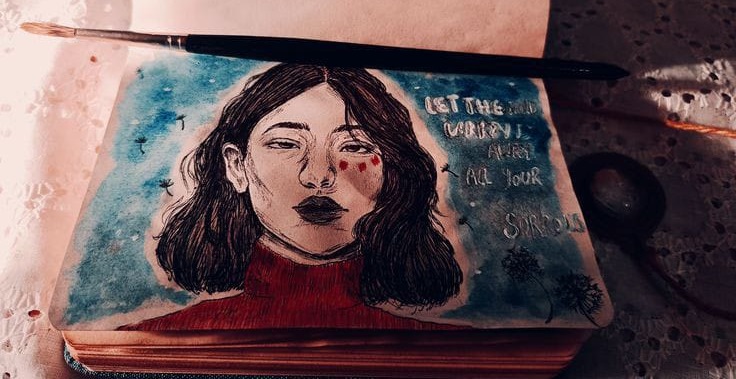 LET THE
AWAY
ALL YOUR
SORROWS